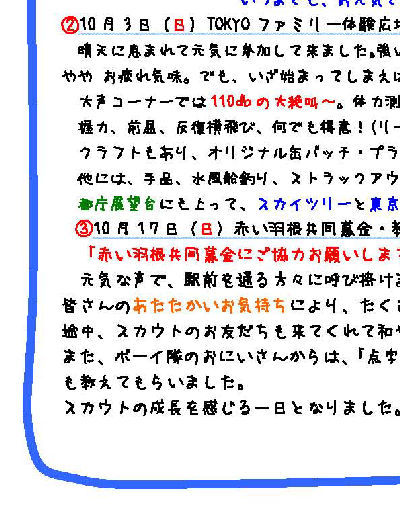 ②10月3日（日）TOKYOファミリー体験広
晴天に恵まれて元気に参加して来ました。強い
やや お疲れ気味。でも、いざ始まってしまえば
大声コーナーでは110dbの大絶叫～。体力測
握力、前屈、反復横飛び、何でも得意！(リー
クラフトもあり、オリジナル缶バッチ・プラ
他には、手品、水風船釣り、ストラックアウ
都庁展望台にも上って、スカイツリーと東京
③10月17日（日）赤い羽根共同募金・
「赤い羽根共同募金にご協力お願いしま
元気な声で、駅前を通る方々に呼び掛け
皆さんのあたたかいお気持ちにより、たく
途中、スカウトのお友だちも来てくれて和
また、ボーイ隊のおにいさんからは、「点字
も教えてもらいました。
スカウトの成長を感じる一日となりました。